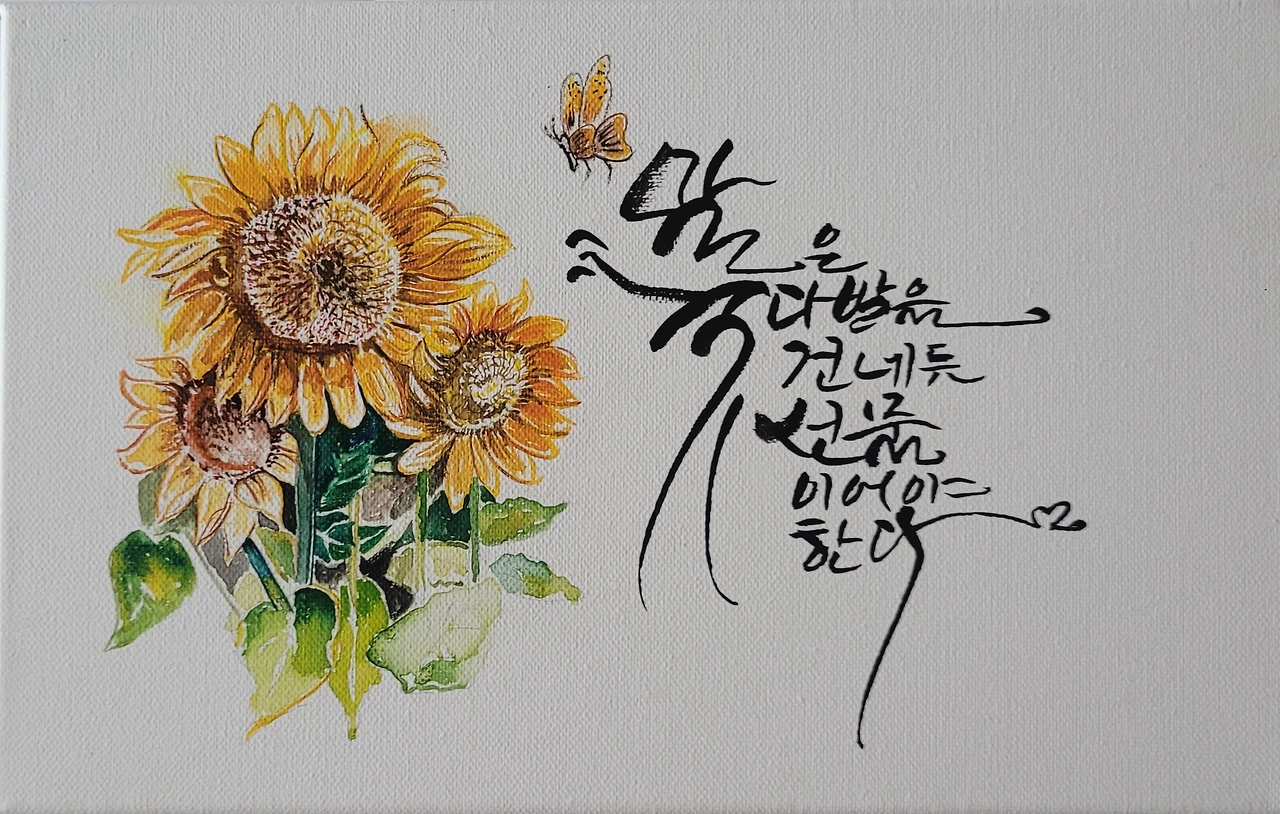 말은
꽃다발을
건네듯
선물
이어야
한다